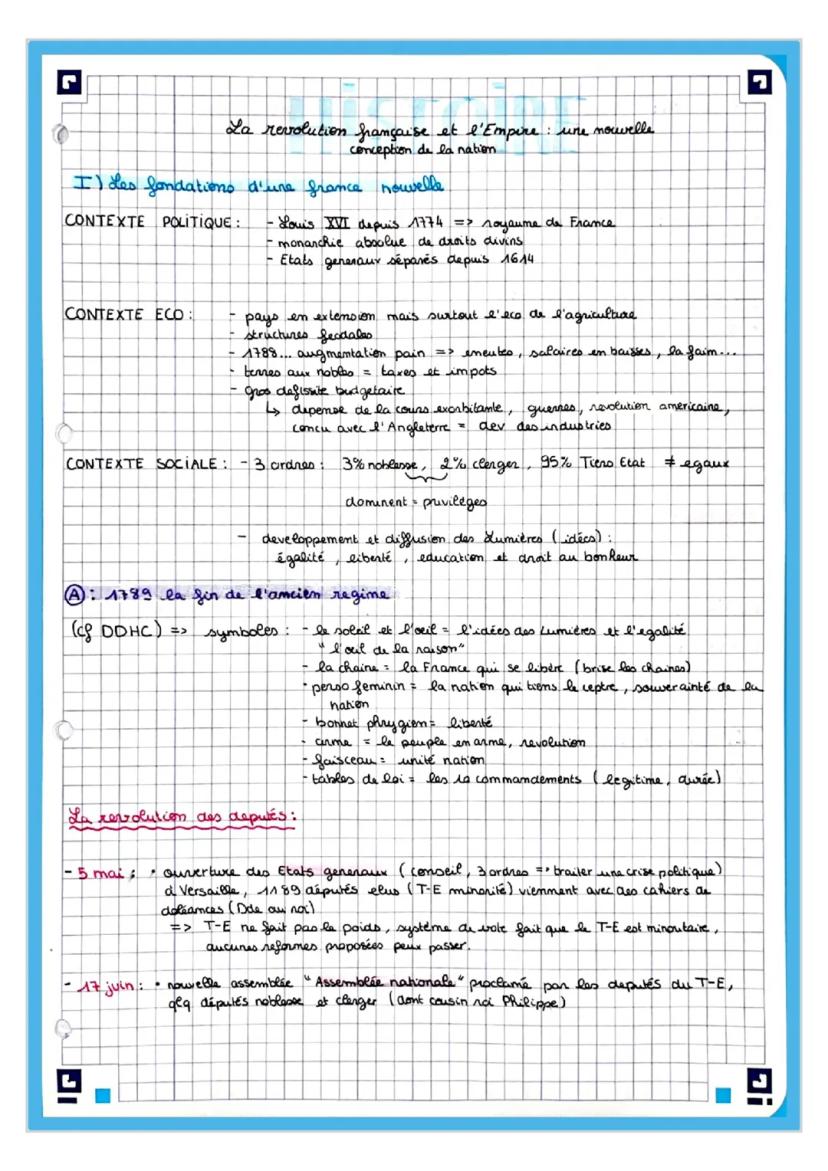 HISTOIRE
La revolution française et l'Empire : une nouvelle
conception de la nation
I) Les fondations d'une france nouvelle
CONTEXTE POLITIQUE : - Louis XVI depuis 1774 => royaume de France
- monarchie absolue de droits divins
- Etats generaux séparés depuis 1614
CONTEXTE ECO : - pays en extension mais surtout l'eco de l'agriculture
- structures feodales
- 1788... augmentation pain => emeutes, salaires en baisses, la faim...
- terres aux nobles = taxes et impots
- gros defissite budgetaire
↳ depense de la cours exorbitante, guerres, revolution americaine,
concu avec l'Angleterre = dev des industries
CONTEXTE SOCIALE : - 3 ordres : 3% noblesse, 2% clerger, 95% Tiers Etat ≠ egaux
dominent = privilèges
- developpement et diffusion des Lumières (idées) :
égalité, liberté, education et droit au bonheur
A : 1789 la fin de l'ancien regime
(cf DDHC) => symboles : - le soleil et l'oeil = l'idées des Lumières et l'egalité
"l'oeil de la raison"
- la chaine = la France qui se libère (brise les chaines)
- perso feminin = la nation qui tiens le ceptre, souverainté de la
nation
- bonnet phrygien = liberté
- arme = le peuple en arme, revolution
- faisceau = unité nation
- tables de loi = les 10 commandements (legitime, durée)
La revolution des deputés :
- 5 mai : • ouverture des Etats generaux (conseil, 3 ordres => traiter une crise politique)
à Versaille, 1189 députés elus (T-E minorité) viennent avec des cahiers de
doléances (Dde au roi)
=> T-E ne fait pas le poids, système de vote fait que le T-E est minoritaire,
aucunes reformes proposées peux passer.
- 17 juin : • nouvelle assemblée "Assemblée nationale" proclamé par les deputés du T-E,
qlq députés noblesse et clerger (dont cousin roi Philippe)